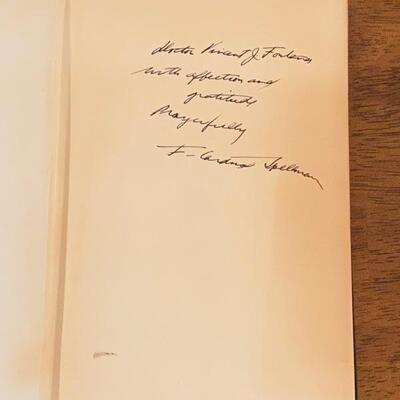 Doctor Vincent J.
with affection and
gratitude
Prayerfully
F. Cardinal Spellman